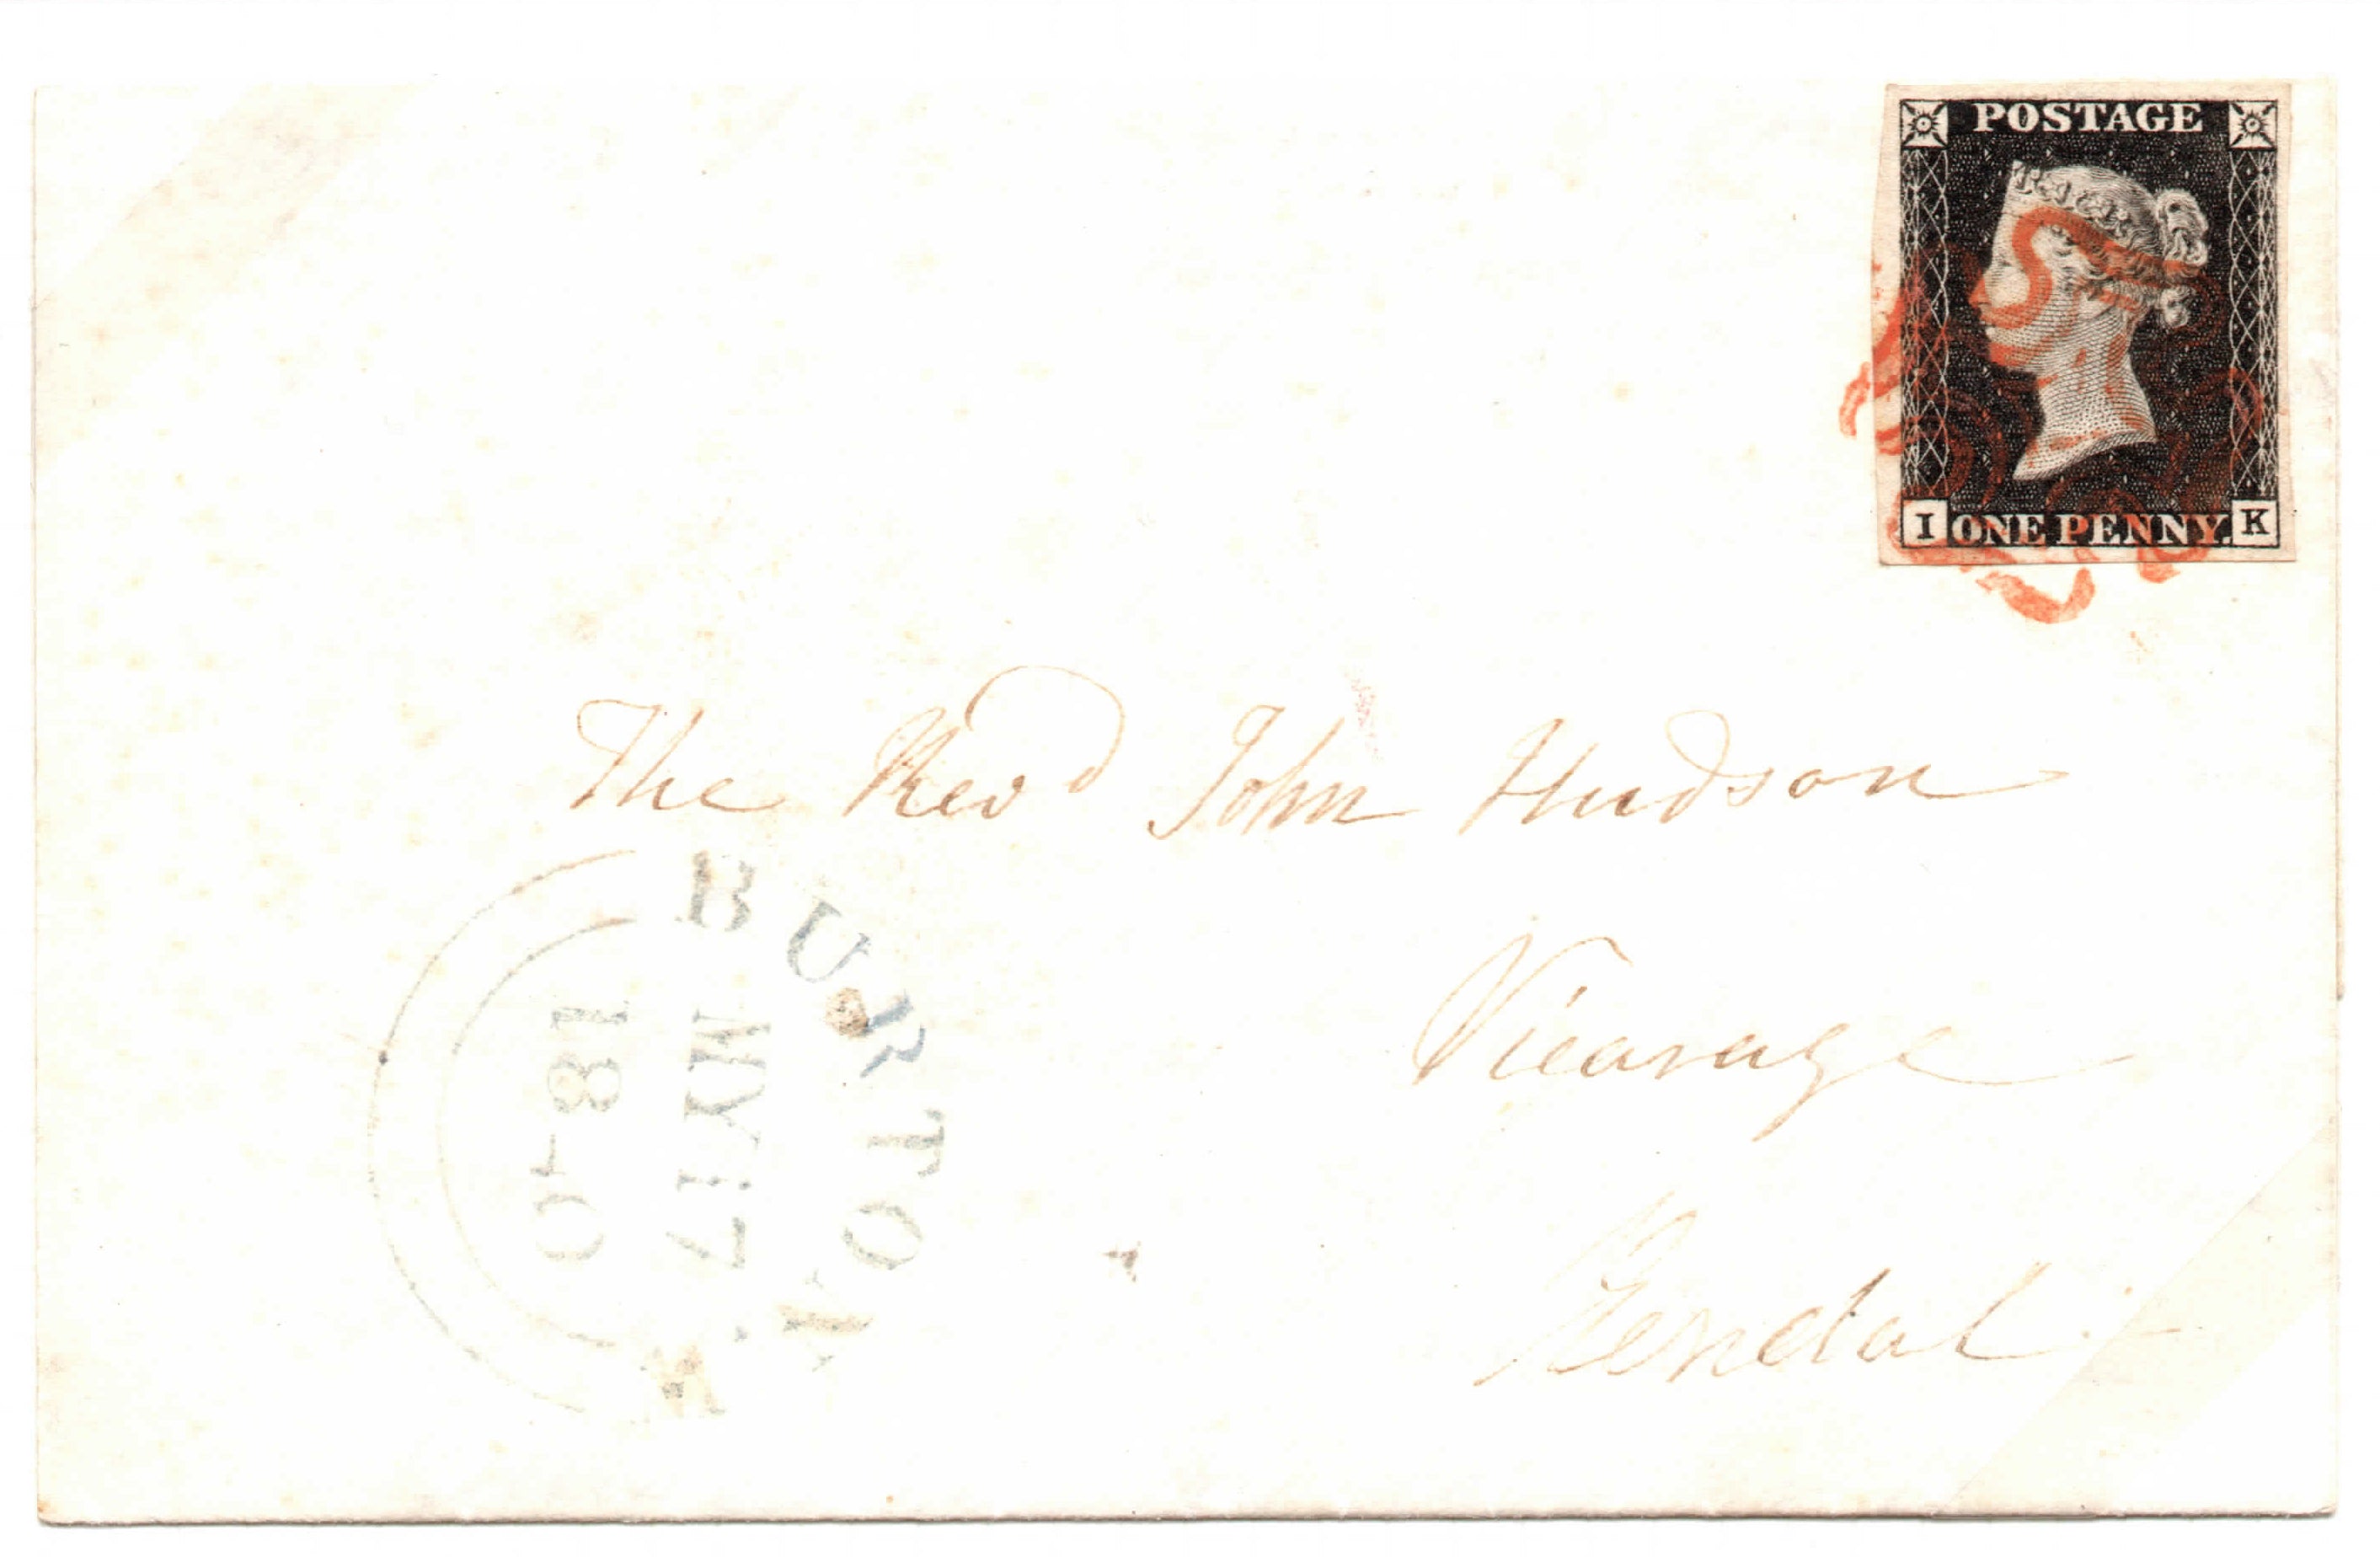 POSTAGE
I ONE PENNY. K
The Revd John Hudson
Vicarage
Kendal
BURTON W
MY 17
1840